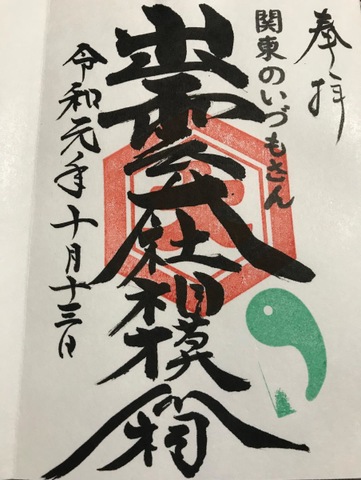 奉拝
関東のいづもさん
出雲大社相模分祠
令和元年十月十三日